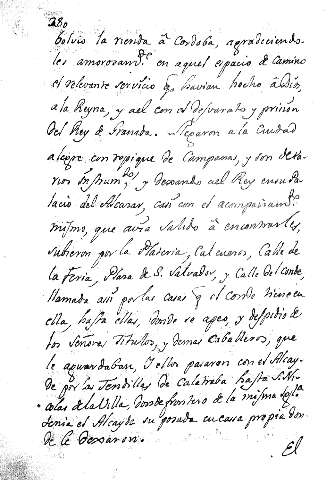 280
bolvio la rienda â Cordoba, agradeciendo
les amorosamte. en aquel espacio de camino
el relevante servicio q havian hecho â Dios,
a la Reyna, y a el con el desvarato, y prision
del Rey de Granada. Llegaron a la Ciudad
alegre con repique de Campanas, y son de va-
rios Instrumtos, y dexando al Rey en su Pa-
lacio del Alcazar, casi con el acompañamto
mismo, que avia salido â encontrarles,
subieron por la Plateria, Calceteros, Calle de
la Feria, Plaza de S. Salvador, y Calle del Conde,
llamada asi por las casas q el conde tiene en
ella, hasta ellas, donde se apeo, y despedio de
los señores Titulos, y demas Caballeros, que
le aguardaban, Y ellos pasaron con el Alcay-
de por las Tendillas de Calatraba hasta S. Ni-
colas de la Villa, donde frontero de la misma Iglesia
tenia el Alcayde su posada en casa propia don-
de le dexaron.
El